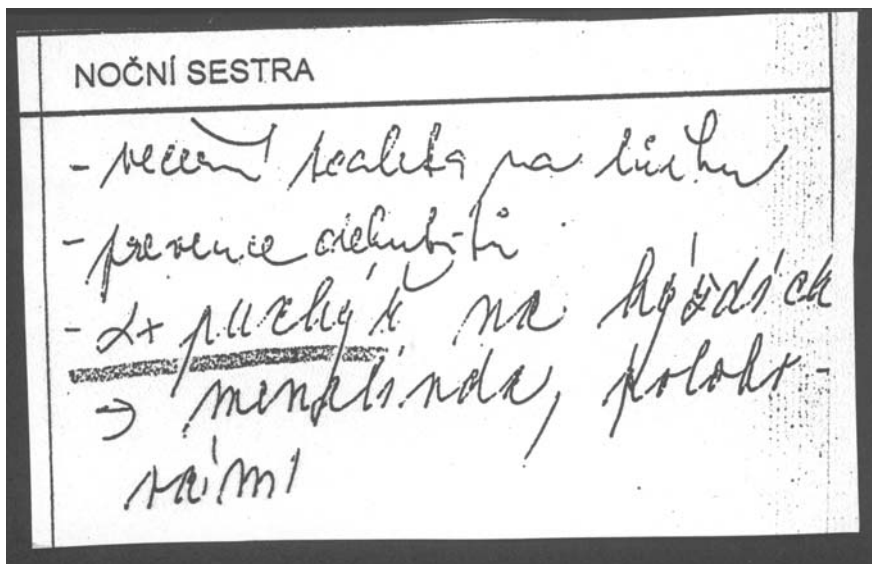 NOČNÍ SESTRA
- večerní toaleta na lůžku
- prevence dekubitů
- 2x puchýř na hýždích
→ menalinda, poloho-
vání